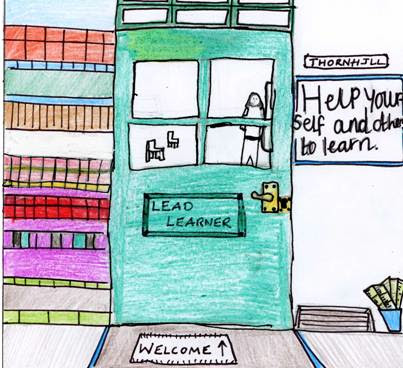 THORNHILL
Help your
self and others
to learn.
LEAD
LEARNER
WELCOME ↑